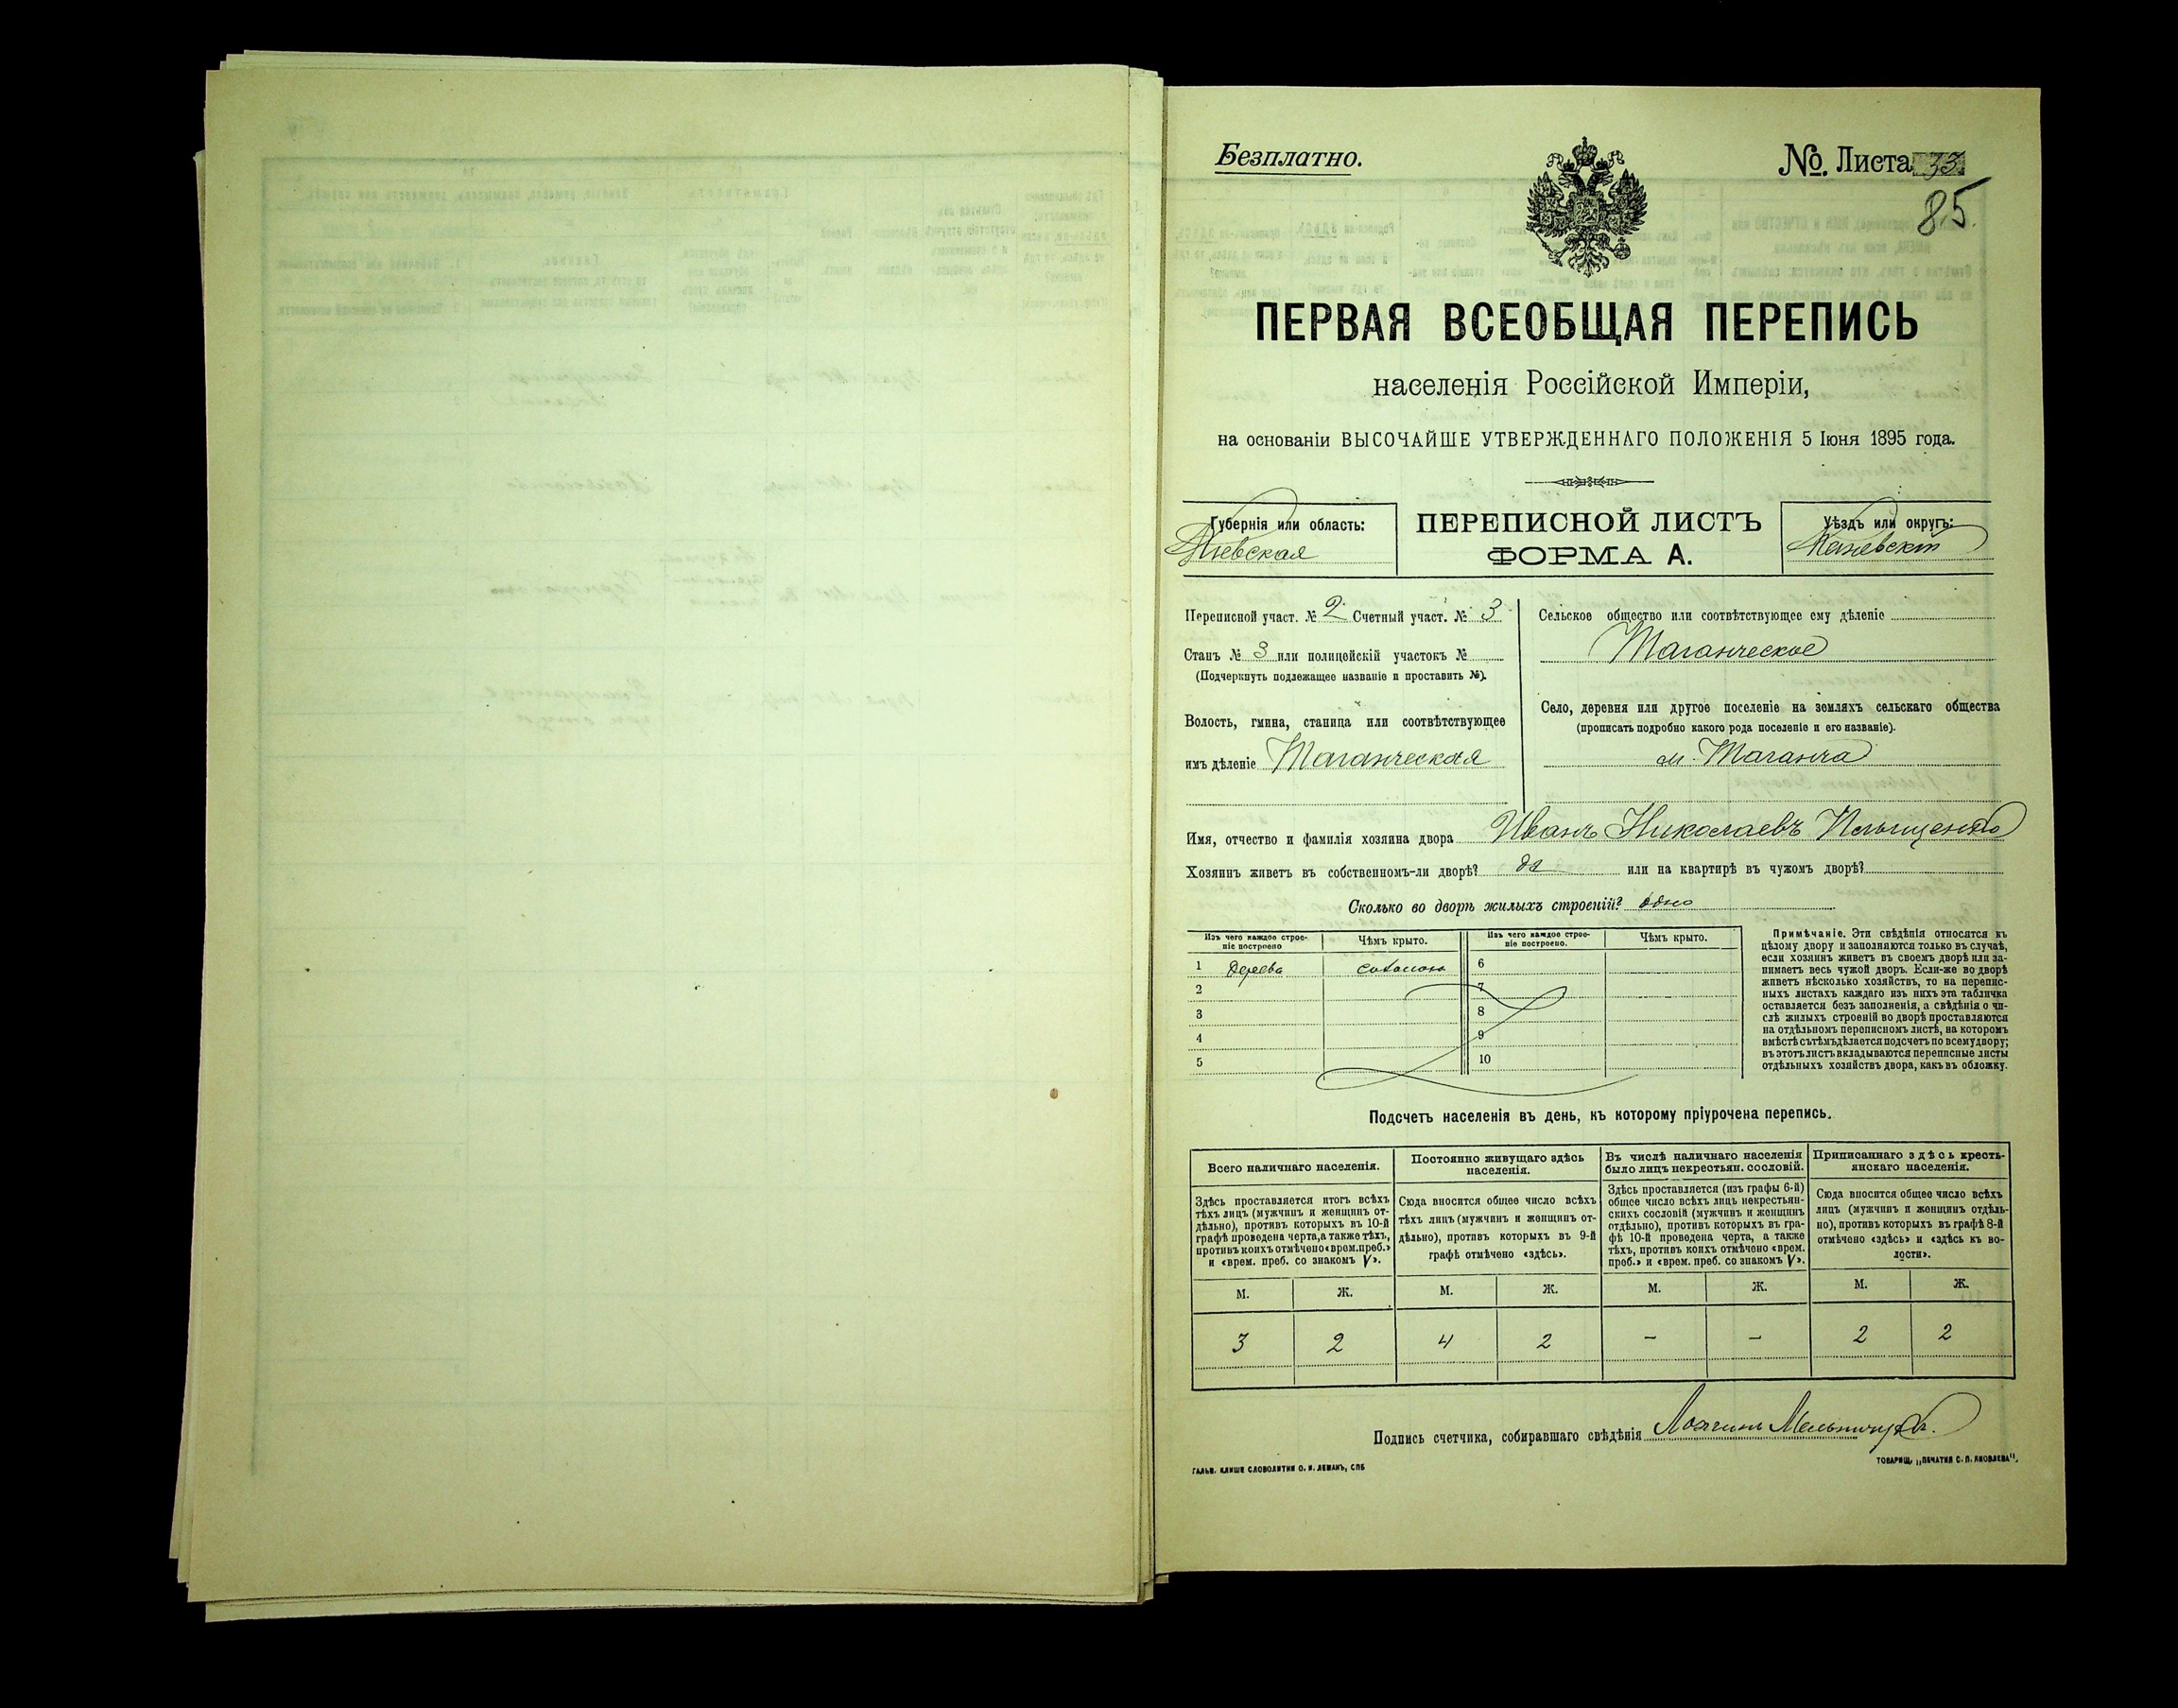 Безплатно.
№. Листа 33
85.
ПЕРВАЯ ВСЕОБЩАЯ ПЕРЕПИСЬ
населенія Россійской Имперіи,
на основаніи ВЫСОЧАЙШЕ УТВЕРЖДЕННАГО ПОЛОЖЕНІЯ 5 Іюня 1895 года.
Губернія или область:
Кіевская
ПЕРЕПИСНОЙ ЛИСТЪ
ФОРМА А.
Уѣздъ или округъ:
Каневскій
Переписной участ. № 2 Счетный участ. № 3
Станъ № 3 или полицейскій участокъ №
(Подчеркнуть подлежащее названіе и проставить №).
Волость, гмина, станица или соотвѣтствующее
имъ дѣленіе Таганческая
Сельское общество или соотвѣтствующее ему дѣленіе
Таганческое
Село, деревня или другое поселеніе на земляхъ сельскаго общества
(прописать подробно какого рода поселеніе и его названіе).
м. Таганча
Имя, отчество и фамилія хозяина двора Иванъ Николаевъ
Хозяинъ живетъ въ собственномъ-ли дворѣ? да или на квартирѣ въ чужомъ дворѣ?
Сколько во дворѣ жилыхъ строеній? одно
Изъ чего каждое строе-
ніе построено
Чѣмъ крыто.
Изъ чего каждое строе-
ніе построено.
Чѣмъ крыто.
1 Дерева соломою 6
2 7
3 8
4 9
5 10
Примѣчаніе. Эти свѣдѣнія относятся къ
цѣлому двору и заполняются только въ случаѣ,
если хозяинъ живетъ въ своемъ дворѣ или за-
нимаетъ весь чужой дворъ. Если-же во дворѣ
живетъ нѣсколько хозяйствъ, то на перепис-
ныхъ листахъ каждаго изъ нихъ эта табличка
оставляется безъ заполненія, а свѣдѣнія о чи-
слѣ жилыхъ строеній во дворѣ проставляются
на отдѣльномъ переписномъ листѣ, на которомъ
вмѣстѣ съ тѣмъ дѣлается подсчетъ по всему двору;
въ этотъ листъ вкладываются переписные листы
отдѣльныхъ хозяйствъ двора, какъ въ обложку.
Подсчетъ населенія въ день, къ которому пріурочена перепись.
Всего наличнаго населенія.
Здѣсь проставляется итогъ всѣхъ
тѣхъ лицъ (мужчинъ и женщинъ от-
дѣльно), противъ которыхъ въ 10-й
графѣ проведена черта, а также тѣхъ,
противъ коихъ отмѣчено «врем. преб.»
и «врем. преб. со знакомъ V».
Постоянно живущаго здѣсь
населенія.
Сюда вносится общее число всѣхъ
тѣхъ лицъ (мужчинъ и женщинъ от-
дѣльно), противъ которыхъ въ 9-й
графѣ отмѣчено «здѣсь».
Въ числѣ наличнаго населенія
было лицъ некрестьян. сословій.
Здѣсь проставляется (изъ графы 6-й)
общее число всѣхъ лицъ некрестьян-
скихъ сословій (мужчинъ и женщинъ
отдѣльно), противъ которыхъ въ гра-
фѣ 10-й проведена черта, а также
тѣхъ, противъ коихъ отмѣчено «врем.
преб.» и «врем. преб. со знакомъ V».
Приписаннаго здѣсь кресть-
янскаго населенія.
Сюда вносится общее число всѣхъ
лицъ (мужчинъ и женщинъ отдѣль-
но), противъ которыхъ въ графѣ 8-й
отмѣчено «здѣсь» и «здѣсь къ во-
лости».
М. Ж. М. Ж. М. Ж. М. Ж.
3 2 4 2 – – 2 2
Подпись счетчика, собиравшаго свѣдѣнія
ГАЛЬВ. КЛИШЕ СЛОВОЛИТНИ О. И. ЛЕМАНЪ, СПБ
ТОВАРИЩ. „ПЕЧАТНЯ С. П. ЯКОВЛЕВА".